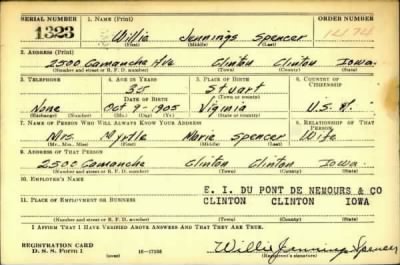 SERIAL NUMBER 1. NAME (Print) ORDER NUMBER
1323 Willie Jennings Spencer 1474
(First) (Middle) (Last)
2. ADDRESS (Print)
2500 Camanche Ave Clinton Clinton Iowa.
(Number and street or R. F. D. number) (Town) (County) (State)
3. TELEPHONE 4. AGE IN YEARS 5. PLACE OF BIRTH 6. COUNTRY OF CITIZENSHIP
35 Stuart
DATE OF BIRTH (Town or county)
None Oct 9- 1905 Virginia U.S.A.
(Exchange) (Number) (Mo.) (Day) (Yr.) (State or country)
7. NAME OF PERSON WHO WILL ALWAYS KNOW YOUR ADDRESS 8. RELATIONSHIP OF THAT PERSON
Mrs. Myrtle Marie Spencer Wife
(Mr., Mrs., Miss) (First) (Middle) (Last)
9. ADDRESS OF THAT PERSON
2500 Camanche Clinton Clinton Iowa.
(Number and street or R. F. D. number) (Town) (County) (State)
10. EMPLOYER'S NAME
E. I. DU PONT DE NEMOURS & CO
11. PLACE OF EMPLOYMENT OR BUSINESS CLINTON CLINTON IOWA
(Number and street or R. F. D. number) (Town) (County) (State)
I AFFIRM THAT I HAVE VERIFIED ABOVE ANSWERS AND THAT THEY ARE TRUE.
REGISTRATION CARD
D. S. S. Form 1 16-17105 Willie Jennings Spencer
(Registrant's signature)